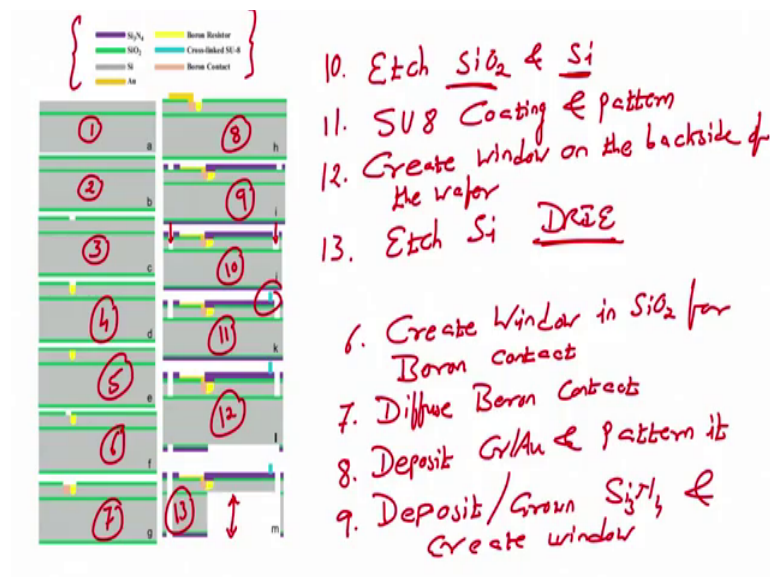 Si₃N₄
SiO₂
Si
Au
Boron Resistor
Cross-linked SU-8
Boron Contact
1 a
2 b
3 c
4 d
5 e
6 f
7 g
8 h
9 i
10 j
11 k
12 l
13 m
10. Etch SiO₂ & Si
11. SU8 Coating & pattern
12. Create window on the backside of
the wafer
13. Etch Si DRIE
6. Create Window in SiO₂ for
Boron contact
7. Diffuse Boron Contact
8. Deposit Cr/Au & pattern it
9. Deposit/Grown Si₃N₄ &
Create window